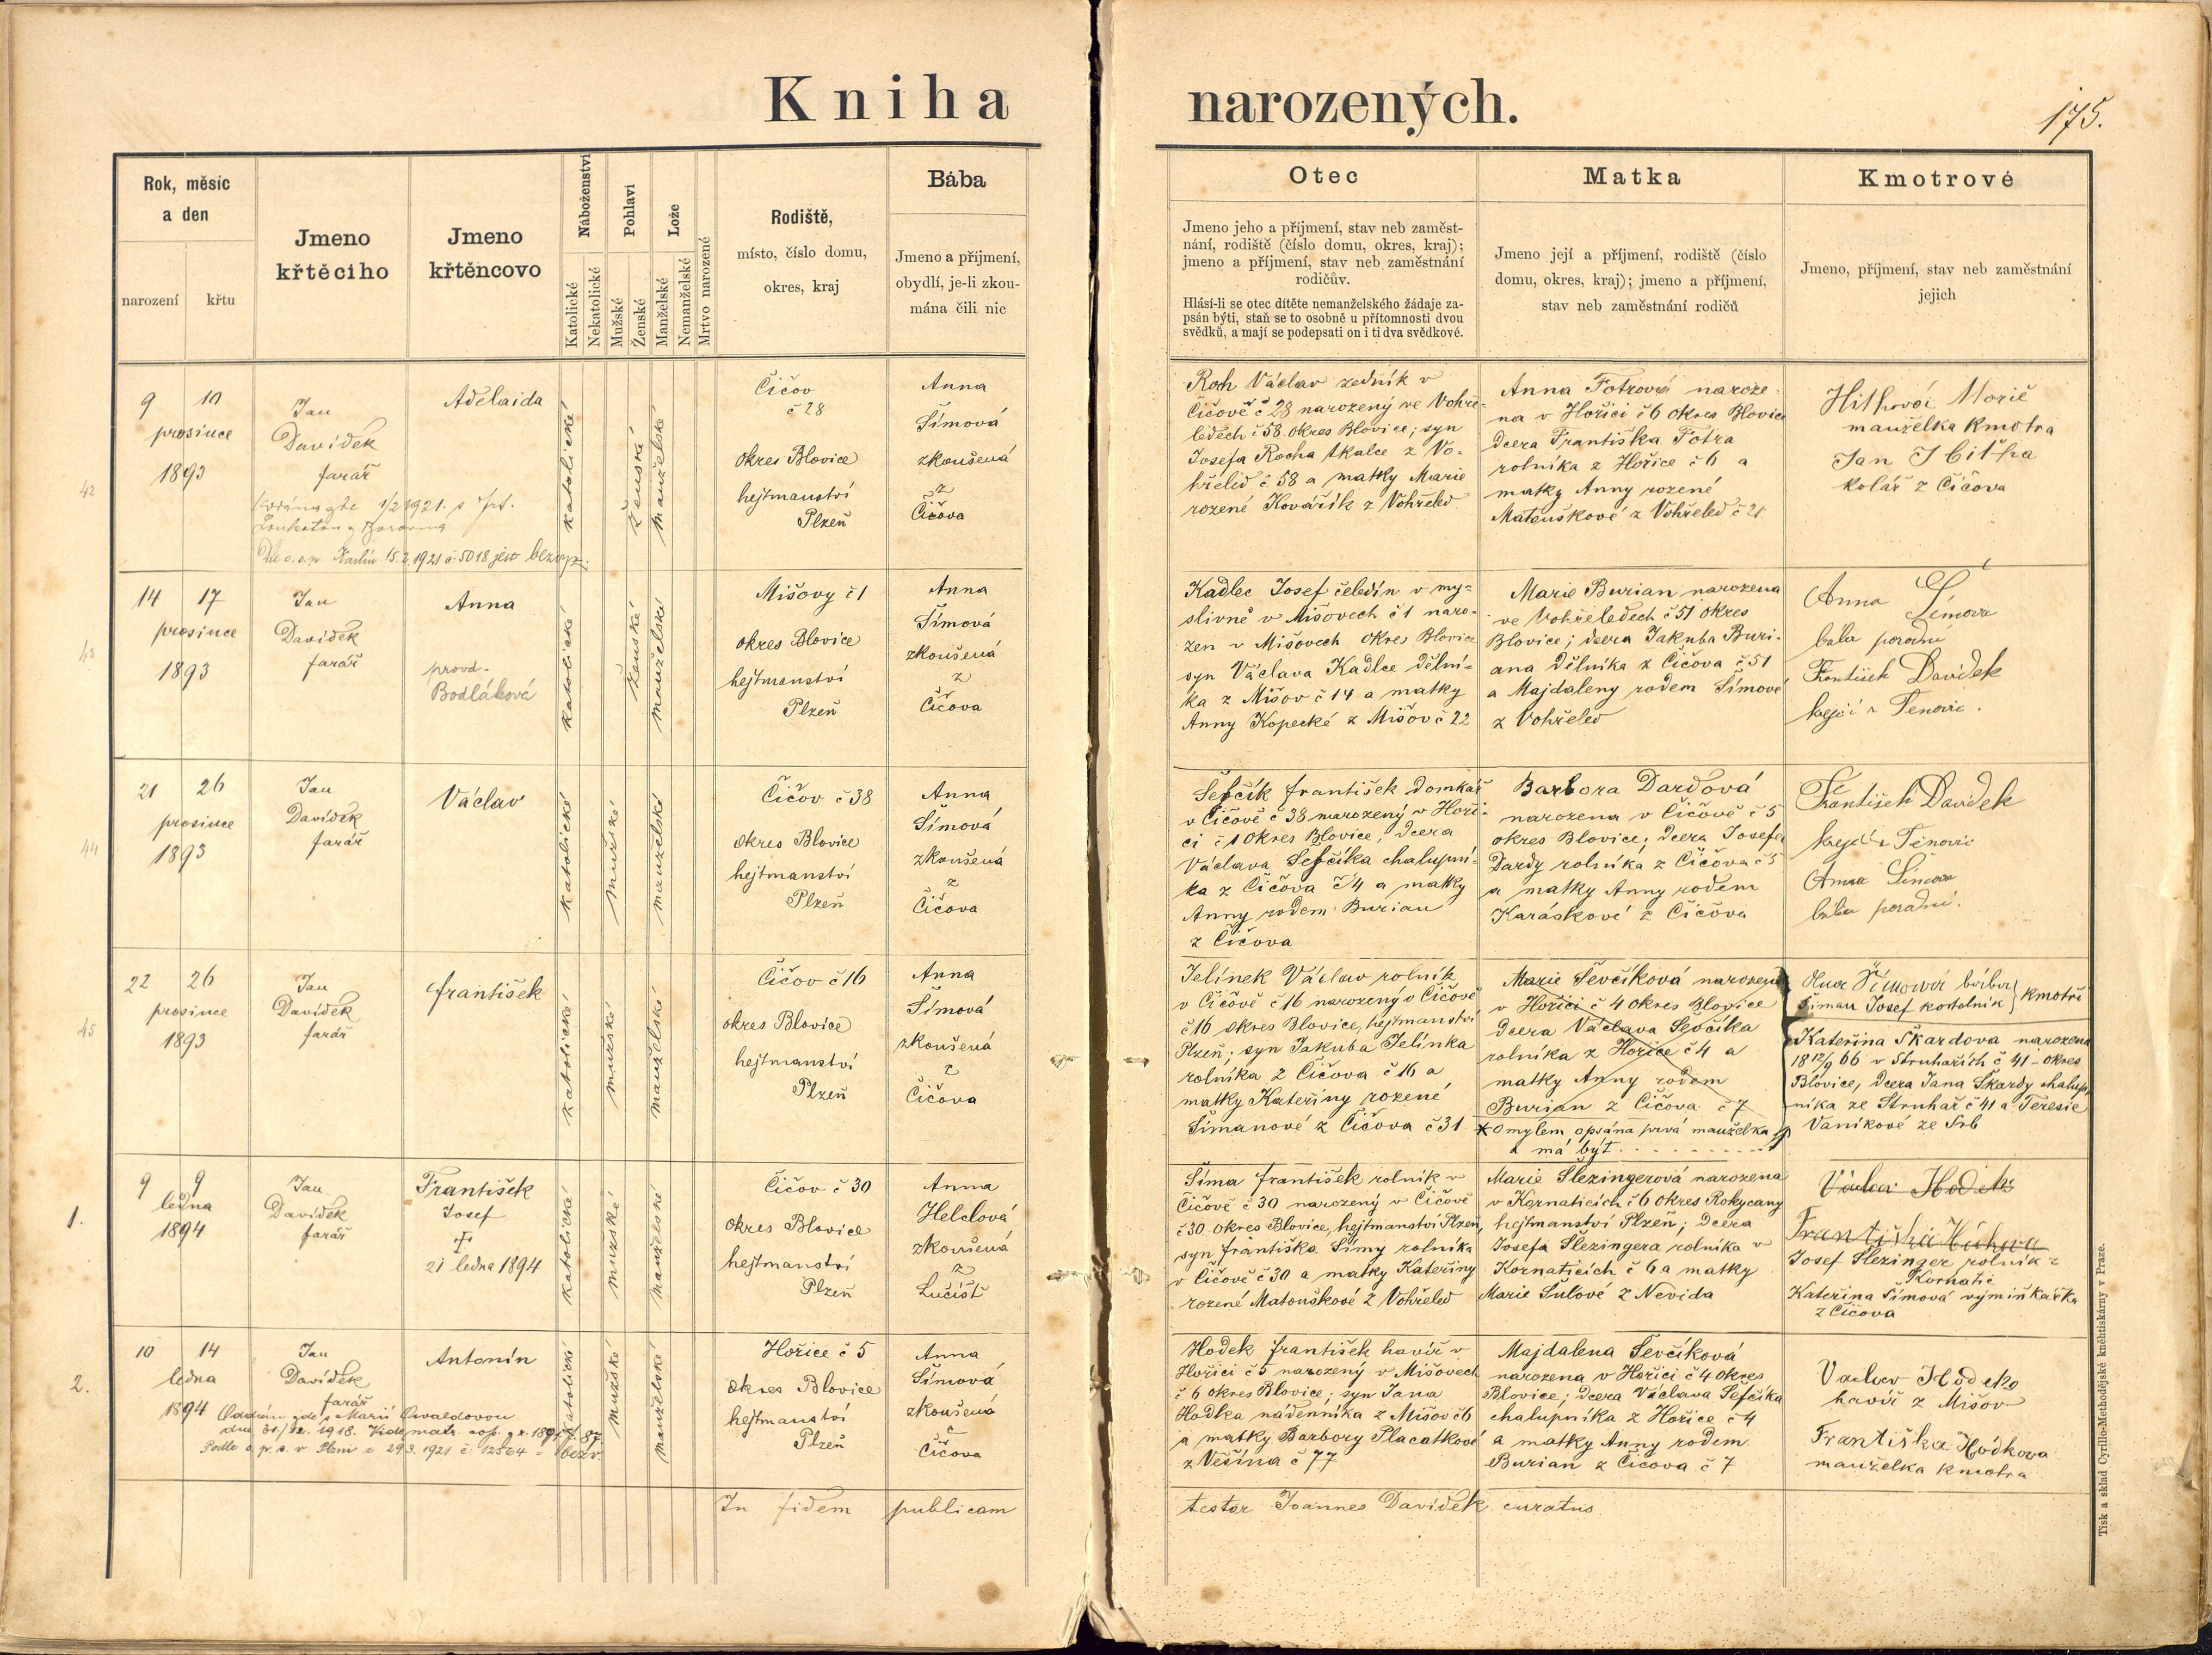 Kniha narozených.
175.
Rok, měsíc
a den
narození
křtu
Jmeno
křtěcího
Jmeno
křtěncovo
Náboženství
Katolické
Nekatolické
Pohlaví
Mužské
Ženské
Lože
Manželské
Nemanželské
Mrtvo narozené
Rodiště,
místo, číslo domu,
okres, kraj
Bába
Jmeno a příjmení,
obydlí, je-li zkou-
mána čili nic
Otec
Jmeno jeho a příjmení, stav neb zaměst-
nání, rodiště (číslo domu, okres, kraj);
jmeno a příjmení, stav neb zaměstnání
rodičův.
Hlásí-li se otec dítěte nemanželského žádaje za-
psán býti, staň se to osobně u přítomnosti dvou
svědků, a mají se podepsati on i ti dva svědkové.
Matka
Jmeno její a příjmení, rodiště (číslo
domu, okres, kraj); jmeno a příjmení,
stav neb zaměstnání rodičů
Kmotrové
Jmeno, příjmení, stav neb zaměstnání
jejich
42
9 10
prosince
1893
Jan
Davídek
farář
1/2 1921.
15.3.1921 č. 5018 jest
Adelaida
katolické
ženská
manželské
Čičov
č 28
okres Blovice
hejtmanství
Plzeň
Anna
Šímová
zkoušená
z
Čičova
Roch Václav zedník v
Čičově č 28 narozený ve Vohře-
ledech č 58 okres Blovice; syn
Josefa Rocha tkalce z Vo-
hřeled č 58 a matky Marie
rozené Kovářík z Vohřeled
Anna Fotrová naroze-
na v Hořici č 6 okres Blovice
dcera Františka Fotra
rolníka z Hořice č 6 a
matky Anny rozené
Matouškové z Vohřeled č 21
manželka kmotra
Jan
kolář z Čičova
43
14 17
prosince
1893
Jan
Davídek
farář
Anna
provd.
Bodláková
katolické
ženská
manželské
Mišovy č 1
okres Blovice
hejtmanství
Plzeň
Anna
Šímová
zkoušená
z
Čičova
Kadlec Josef čeledín v my-
slivně v Mišovech č 1 naro-
zen v Mišovech okres Blovice
syn Václava Kadlce dělní-
ka z Mišov č 14 a matky
Anny Kopecké z Mišov č 22
Marie Burian narozena
ve Vohřeledech č 51 okres
Blovice; dcera Jakuba Buri-
ana dělníka z Čičova č 51
a Majdaleny rodem Šímové
z Vohřeled
Anna Šímova
baba poradni
František Davídek
krejčí z Tenovic.
44
21 26
prosince
1893
Jan
Davídek
farář
Václav
katolické
mužské
manželské
Čičov č 38
okres Blovice
hejtmanství
Plzeň
Anna
Šímová
zkoušená
z
Čičova
Šefčík František domkář
v Čičově č 38 narozený v Hoři-
ci č 1 okres Blovice, dcera
Václava Šefčíka chalupní-
ka z Čičova č 4 a matky
Anny rodem Burian
z Čičova
Barbora Dardová
narozena v Čičově č 5
okres Blovice; dcera Josefa
Dardy rolníka z Čičova č 5
a matky Anny rodem
Karáskové z Čičova
František Davídek
krejčí z Tenovic
Anna Šímova
baba poradni.
45
22 26
prosince
1893
Jan
Davídek
farář
František
katolické
mužské
manželské
Čičov č 16
okres Blovice
hejtmanství
Plzeň
Anna
Šímová
zkoušená
z
Čičova
Jelínek Václav rolník
v Čičově č 16 narozený v Čičově
č 16 okres Blovice, hejtmanství
Plzeň; syn Jakuba Jelínka
rolníka z Čičova č 16 a
matky Kateřiny rozené
Šimanové z Čičova č 31
Marie Ševčíková narozena
v Hořici č 4 okres Blovice
dcera Václava Ševčíka
rolníka z Hořice č 4 a
matky Anny rodem
Burian z Čičova č 7
omylem opsána prvá manželka
a má být
Anna Šímová bába
Šiman Josef kostelník } kmotři
Kateřina Škardova narozena
18 12/9 66 v Struhařích č 41 - okres
Blovice, dcera Jana Škardy chalup-
níka ze Struhař č 41 a Teresie
Vaníkové ze Srb
1.
9 9
ledna
1894
Jan
Davídek
farář
František
Josef
†
21 ledna 1894
katolické
mužské
manželské
Čičov č 30
okres Blovice
hejtmanství
Plzeň
Anna
Helclová
zkoušená
z
Lučišt
Šíma František rolník v
Čičově č 30 narozený v Čičově
č 30 okres Blovice, hejtmanství Plzeň,
syn Františka Šímy rolníka
v Čičově č 30 a matky Kateřiny
rozené Matouškové z Vohřeled
Marie Šlezingerová narozena
v Kornaticích č 6 okres Rokycany
hejtmanství Plzeň; dcera
Josefa Šlezingera rolníka v
Kornaticích č 6 a matky
Marie Šulové z Nevida
Václav Hodek
Františka
Josef Šlezinger rolník z
Kornatic
Kateřina Šímová výminkářka
z Čičova
2.
10 14
ledna
1894
Jan
Davídek
farář
Oddán zde s Marií Osvaldovou
dne 31/12. 1918. Vide matr. cop.
Podle o. p. s. v Plzni z 29 3. 1921 č. 12564 = bezv.
Antonín
katolické
mužské
manželské
Hořice č 5
okres Blovice
hejtmanství
Plzeň
Anna
Šímová
zkoušená
z
Čičova
Hodek František havíř v
Hořici č 5 narozený v Mišovech
č 6 okres Blovice; syn Jana
Hodka nádenníka z Mišov č 6
a matky Barbory Placatkové
z Věšína č 77
Majdalena Ševčíková
narozena v Hořici č 4 okres
Blovice; dcera Václava Šefčíka
chalupníka z Hořice č 4
a matky Anny rodem
Burian z Čičova č 7
Vaclav Hodek
havíř z Mišov
Františka Hodkova
manželka kmotra
In fidem publicam testor Joannes Davídek curatus
Tisk a sklad Cyrillo-Methodějské kněhtiskárny v Praze.